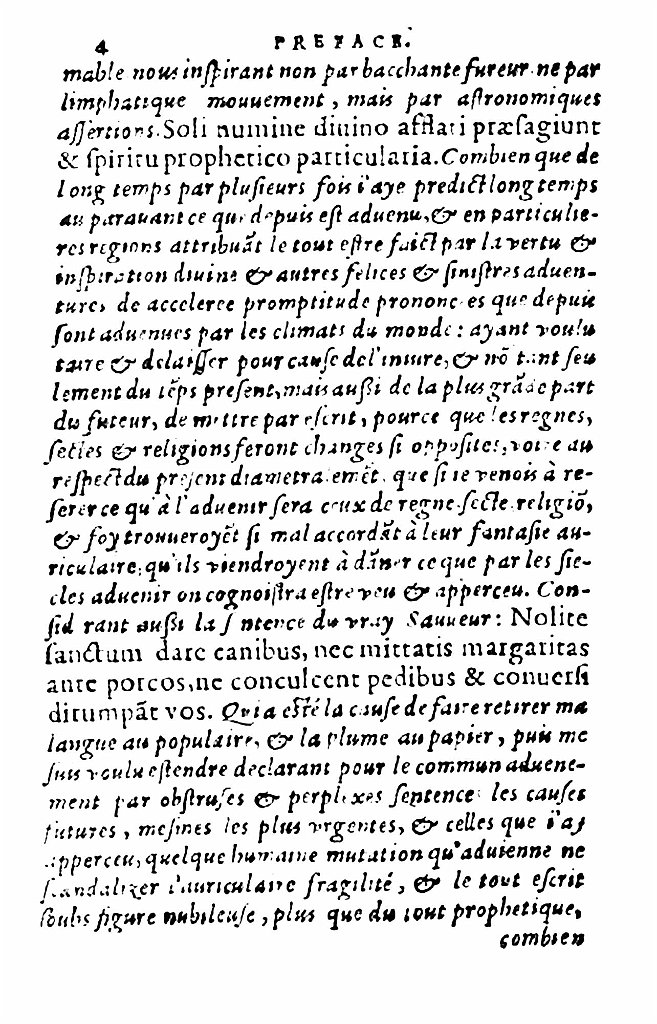 4 PREFACE.
mable nous inſpirant non par bacchante fureur ne par
limphatique mouuement, mais par aſtronomiques
aſſertions. Soli numine diuino afflati præſagiunt
& ſpiritu prophetico particularia. Combien que de
long temps par pluſieurs fois i'aye predict long temps
au parauant ce que depuis eſt aduenu, & en particulie-
res regions attribuāt le tout eſtre faict par la vertu &
inſpiration diuine & autres felices & ſiniſtres aduen-
tures de acceleree promptitude prononcees que depuis
ſont aduenues par les climats du monde: ayant voulu
taire & delaiſſer pour cauſe de l'iniure, & nō tant ſeu
lement du tēps preſent, mais auſſi de la plus grāde part
du futeur, de mettre par eſcrit, pource que les regnes,
ſectes & religions feront changes ſi oppoſites, voire au
reſpect du preſent diametralemēt, que ſi ie venois à re-
ferer ce qu'à l'aduenir ſera ceux de regne, ſecte, religiō,
& foy trouueroyēt ſi mal accordāt à leur fantaſie au-
riculaire, qu'ils viendroyent à dāner ce que par les ſie-
cles aduenir on cognoiſtra eſtre veu & apperceu. Con-
ſid rant auſſi la ſ ntence du vray Sauueur: Nolite
ſanctum dare canibus, nec mittatis margaritas
ante porcos, ne conculcent pedibus & conuerſi
diſrumpāt vos. Qui a eſté la cauſe de faire retirer ma
langue au populaire, & la plume au papier, puis me
ſuis voulu eſtendre declarant pour le commun aduene-
ment par obſtruſes & perplexes ſentence les cauſes
futures, meſmes les plus vrgentes, & celles que i'ay
apperceu, quelque humaine mutation qu'aduienne ne
ſcandalizer l'auriculaire fragilité, & le tout eſcrit
ſoubs figure nubileuſe, plus que du tout prophetique,
combien